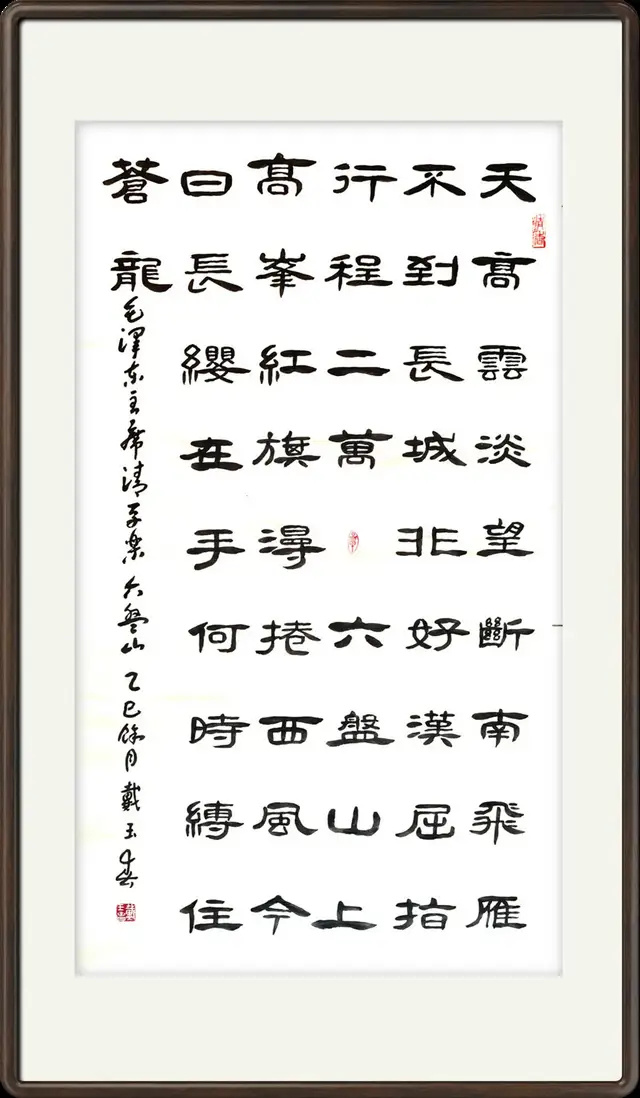 天髙雲淡望斷南飛雁
不到長城非好漢屈指
行程二萬 六盤山上
髙峯紅旗漫捲西風今
日長纓在手何時縛住
蒼龍
毛澤东主席清平樂 六盤山 乙巳餘月 戴玉春